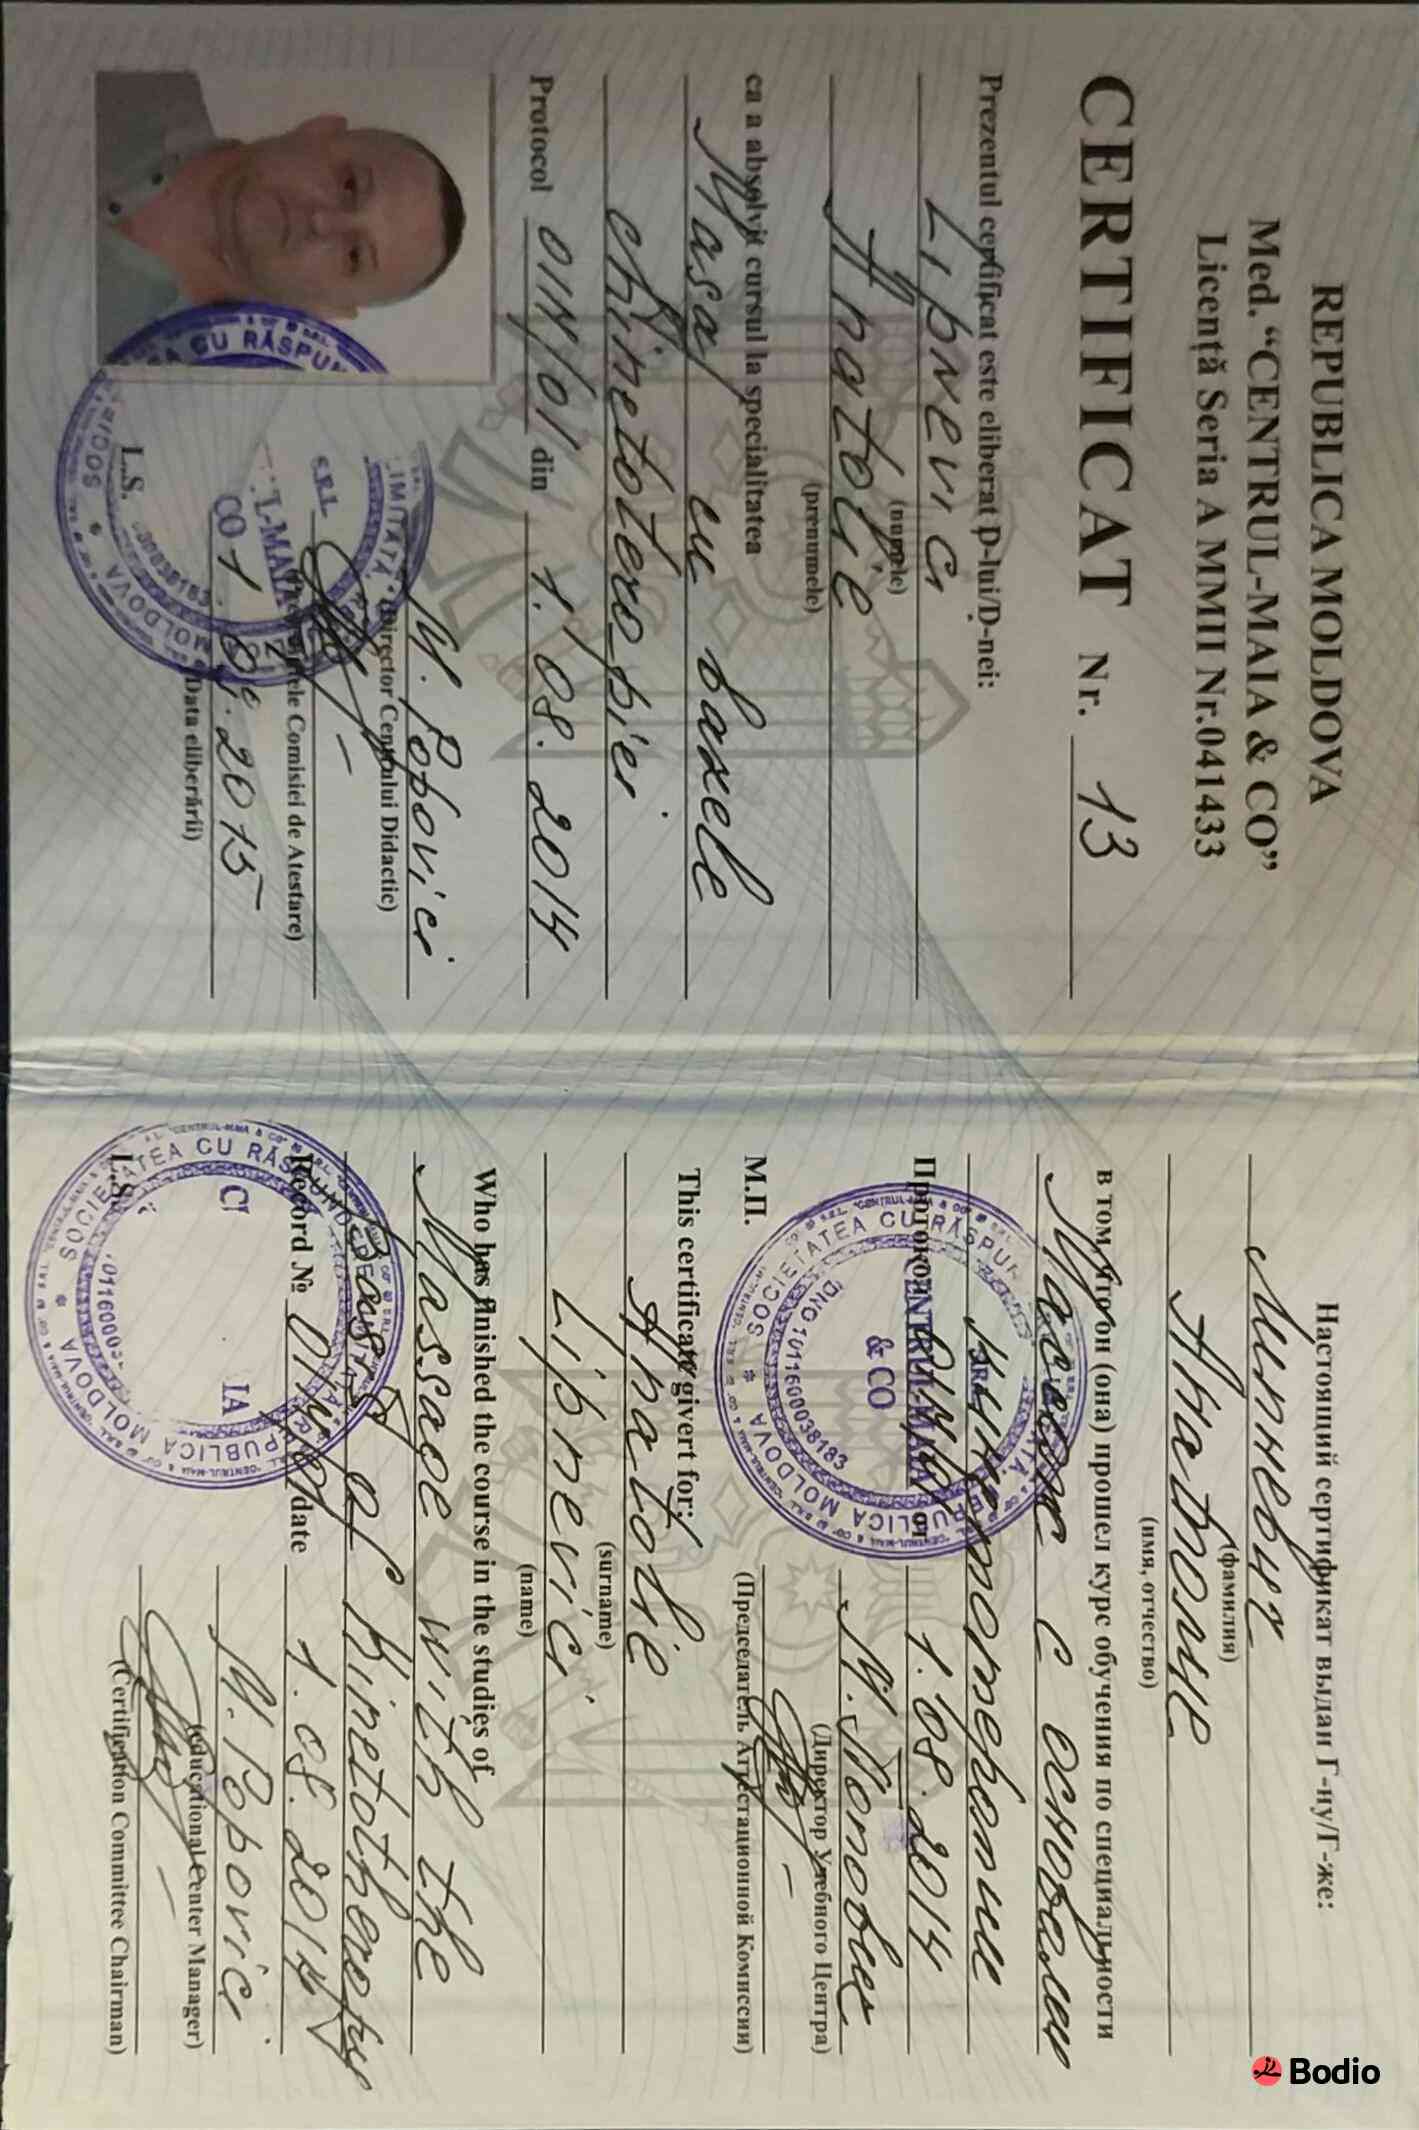 REPUBLICA MOLDOVA
Med. "CENTRUL-MAIA & CO"
Licență Seria A MMII Nr.041433
CERTIFICAT Nr. 13
Prezentul certificat este eliberat D-lui/D-nei:
Lipnevici
(numele)
Anatolie
(prenumele)
ca a absolvit cursul la specialitatea
Masaj cu baxele
chinetoterapiei
Protocol 014/01 din 1.08.2014
M. Popovici
(Director Centrului Didactic)
Comisiei de Atestare)
2015
(Data eliberării)
L.S.
Настоящий сертификат выдан Г-ну/Г-же:
Липневич
(фамилия)
Анатолие
(имя, отчество)
в том что он (она) прошел курс обучения по специальности
Массаж с основами
кинетотерапии
Протокол от 1.08.2014
М. Попович
(Директор Учебного Центра)
(Председатель Аттестационной Комиссии)
М.П.
SOCIETATEA CU RĂSPUN
REPUBLICA MOLDOVA
CENTRUL-MAIA
& CO
1011600038183
This certificate givert for:
Anatolie
(surname)
Lipnevici
(name)
Who has finished the course in the studies of
Massage with the
of kinetotherapy
Record № date 1.08.2014
M. Popovici
(educational Center Manager)
(Certification Committee Chairman)
L.S.
Bodio